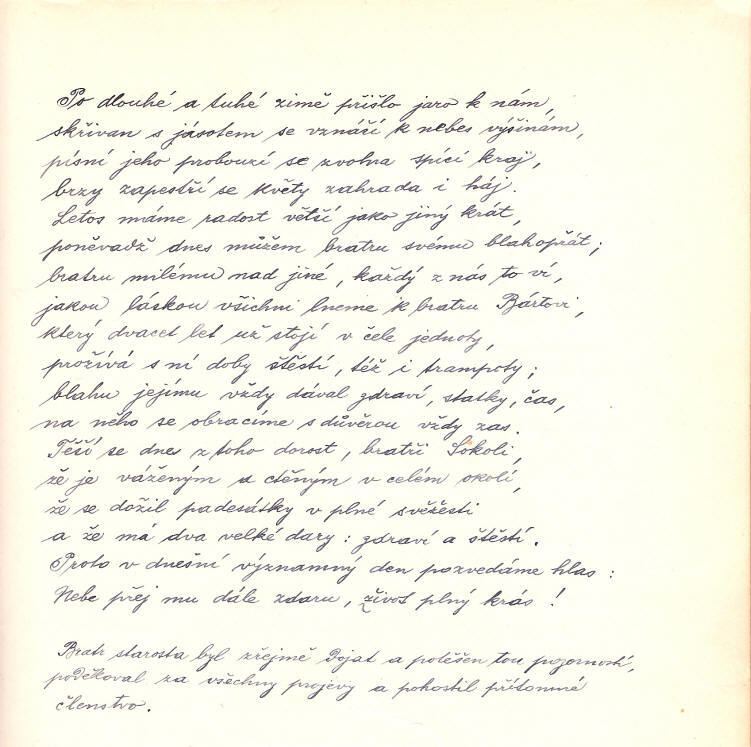 Po dlouhé a tuhé zimě přišlo jaro k nám,
skřivan s jásotem se vznáší k nebes výšinám,
písní jeho probouzí se zvolna spící kraj,
brzy zapestří se květy zahrada i háj.
Letos máme radost větší jako jiný krát,
poněvadž dnes můžem bratru svému blahopřát;
bratru milému nad jiné, každý z nás to ví,
jakou láskou všichni lneme k bratru Bártovi,
který dvacet let už stojí v čele jednoty,
prožívá s ní doby štěstí, též i trampoty;
blahu jejímu vždy dával zdraví, statky, čas,
na něho se obracíme s důvěrou vždy zas.
Těší se dnes z toho dorost, bratři Sokoli,
že je váženým a ctěným v celém okolí,
že se dožil padesátky v plné svěžesti
a že má dva velké dary: zdraví a štěstí.
Proto v dnešní významný den pozvedáme hlas:
Nebe přej mu dále zdaru, život plný krás!
Bratr starosta byl zřejmě dojat a potěšen tou pozorností,
poděkoval za všechny projevy a pohostil přítomné
členstvo.